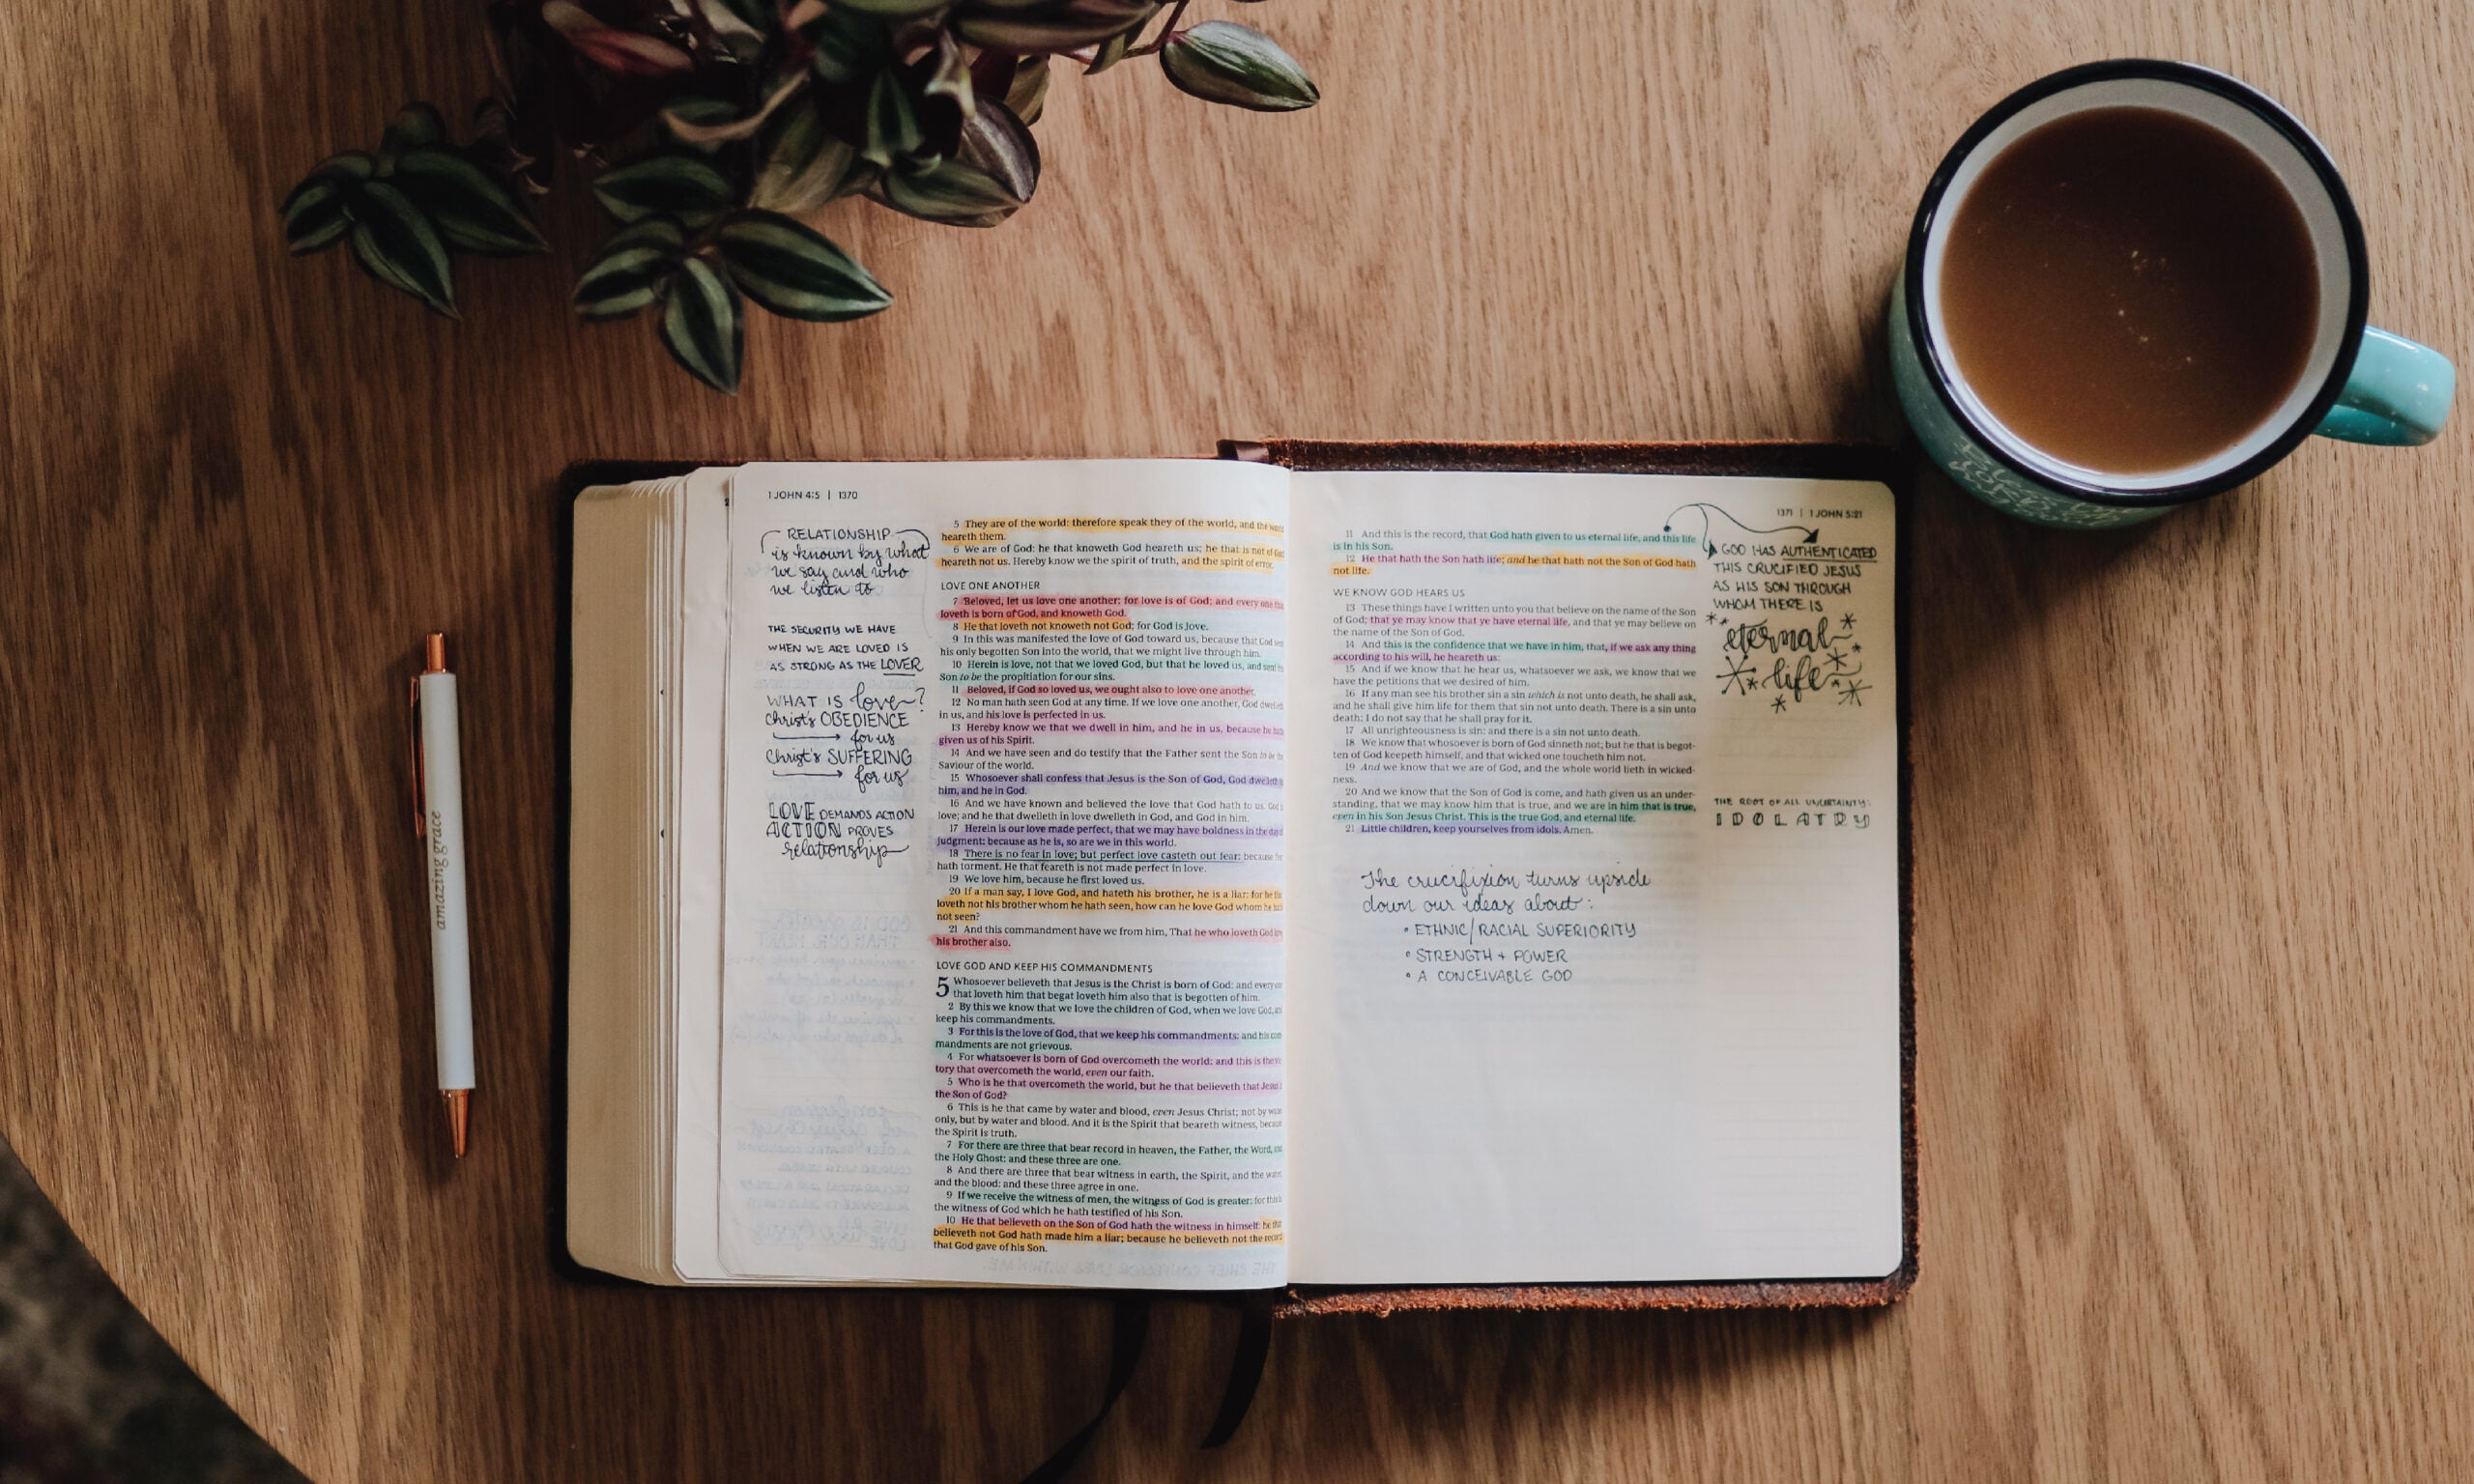 1 JOHN 4:5 | 1370
RELATIONSHIP
is known by what
we say and who
we listen to
THE SECURITY WE HAVE
WHEN WE ARE LOVED IS
AS STRONG AS THE LOVER
WHAT IS love?
Christ's OBEDIENCE
for us
Christ's SUFFERING
for us
LOVE DEMANDS ACTION
ACTION PROVES
relationship
5 They are of the world: therefore speak they of the world, and the world
heareth them.
6 We are of God: he that knoweth God heareth us; he that is not of God
heareth not us. Hereby know we the spirit of truth, and the spirit of error.
LOVE ONE ANOTHER
7 Beloved, let us love one another: for love is of God; and every one that
loveth is born of God, and knoweth God.
8 He that loveth not knoweth not God; for God is love.
9 In this was manifested the love of God toward us, because that God sent
his only begotten Son into the world, that we might live through him.
10 Herein is love, not that we loved God, but that he loved us, and sent his
Son to be the propitiation for our sins.
11 Beloved, if God so loved us, we ought also to love one another.
12 No man hath seen God at any time. If we love one another, God dwelleth
in us, and his love is perfected in us.
13 Hereby know we that we dwell in him, and he in us, because he hath
given us of his Spirit.
14 And we have seen and do testify that the Father sent the Son to be the
Saviour of the world.
15 Whosoever shall confess that Jesus is the Son of God, God dwelleth in
him, and he in God.
16 And we have known and believed the love that God hath to us. God is
love; and he that dwelleth in love dwelleth in God, and God in him.
17 Herein is our love made perfect, that we may have boldness in the day of
judgment: because as he is, so are we in this world.
18 There is no fear in love; but perfect love casteth out fear: because fear
hath torment. He that feareth is not made perfect in love.
19 We love him, because he first loved us.
20 If a man say, I love God, and hateth his brother, he is a liar: for he that
loveth not his brother whom he hath seen, how can he love God whom he hath
not seen?
21 And this commandment have we from him, That he who loveth God love
his brother also.
LOVE GOD AND KEEP HIS COMMANDMENTS
5 Whosoever believeth that Jesus is the Christ is born of God: and every one
that loveth him that begat loveth him also that is begotten of him.
2 By this we know that we love the children of God, when we love God, and
keep his commandments.
3 For this is the love of God, that we keep his commandments: and his com-
mandments are not grievous.
4 For whatsoever is born of God overcometh the world: and this is the vic-
tory that overcometh the world, even our faith.
5 Who is he that overcometh the world, but he that believeth that Jesus is
the Son of God?
6 This is he that came by water and blood, even Jesus Christ; not by water
only, but by water and blood. And it is the Spirit that beareth witness, because
the Spirit is truth.
7 For there are three that bear record in heaven, the Father, the Word, and
the Holy Ghost: and these three are one.
8 And there are three that bear witness in earth, the Spirit, and the water,
and the blood: and these three agree in one.
9 If we receive the witness of men, the witness of God is greater: for this is
the witness of God which he hath testified of his Son.
10 He that believeth on the Son of God hath the witness in himself: he that
believeth not God hath made him a liar; because he believeth not the record
that God gave of his Son.
1371 | 1 JOHN 5:21
11 And this is the record, that God hath given to us eternal life, and this life
is in his Son.
12 He that hath the Son hath life; and he that hath not the Son of God hath
not life.
WE KNOW GOD HEARS US
13 These things have I written unto you that believe on the name of the Son
of God; that ye may know that ye have eternal life, and that ye may believe on
the name of the Son of God.
14 And this is the confidence that we have in him, that, if we ask any thing
according to his will, he heareth us:
15 And if we know that he hear us, whatsoever we ask, we know that we
have the petitions that we desired of him.
16 If any man see his brother sin a sin which is not unto death, he shall ask,
and he shall give him life for them that sin not unto death. There is a sin unto
death: I do not say that he shall pray for it.
17 All unrighteousness is sin: and there is a sin not unto death.
18 We know that whosoever is born of God sinneth not; but he that is begot-
ten of God keepeth himself, and that wicked one toucheth him not.
19 And we know that we are of God, and the whole world lieth in wicked-
ness.
20 And we know that the Son of God is come, and hath given us an under-
standing, that we may know him that is true, and we are in him that is true,
even in his Son Jesus Christ. This is the true God, and eternal life.
21 Little children, keep yourselves from idols. Amen.
The crucifixion turns upside
down our ideas about:
• ETHNIC/RACIAL SUPERIORITY
• STRENGTH + POWER
• A CONCEIVABLE GOD
GOD HAS AUTHENTICATED
THIS CRUCIFIED JESUS
AS HIS SON THROUGH
WHOM THERE IS
eternal
life
THE ROOT OF ALL UNCERTAINTY:
IDOLATRY
amazing grace